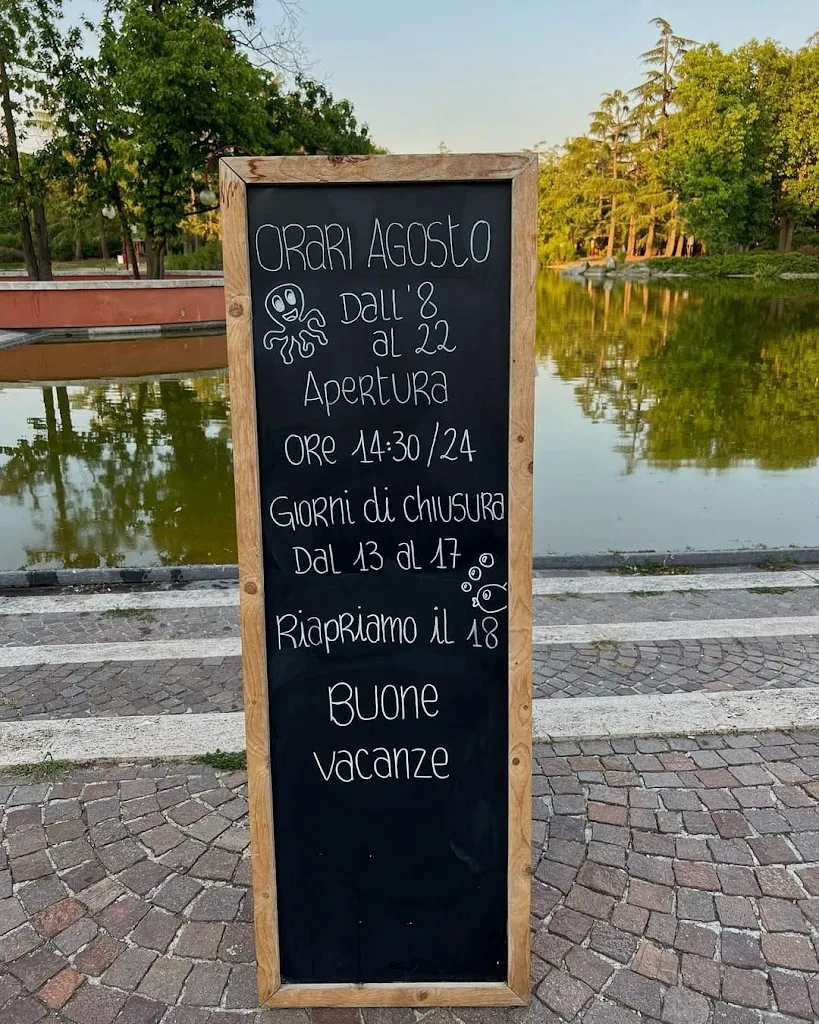 ORARI AGOSTO
DALL'8
al 22
APERTURA
ORE 14:30/24
GIORNI di CHIUSURA
DAL 13 al 17
RIAPRIAMO il 18
BUONE
vacanze